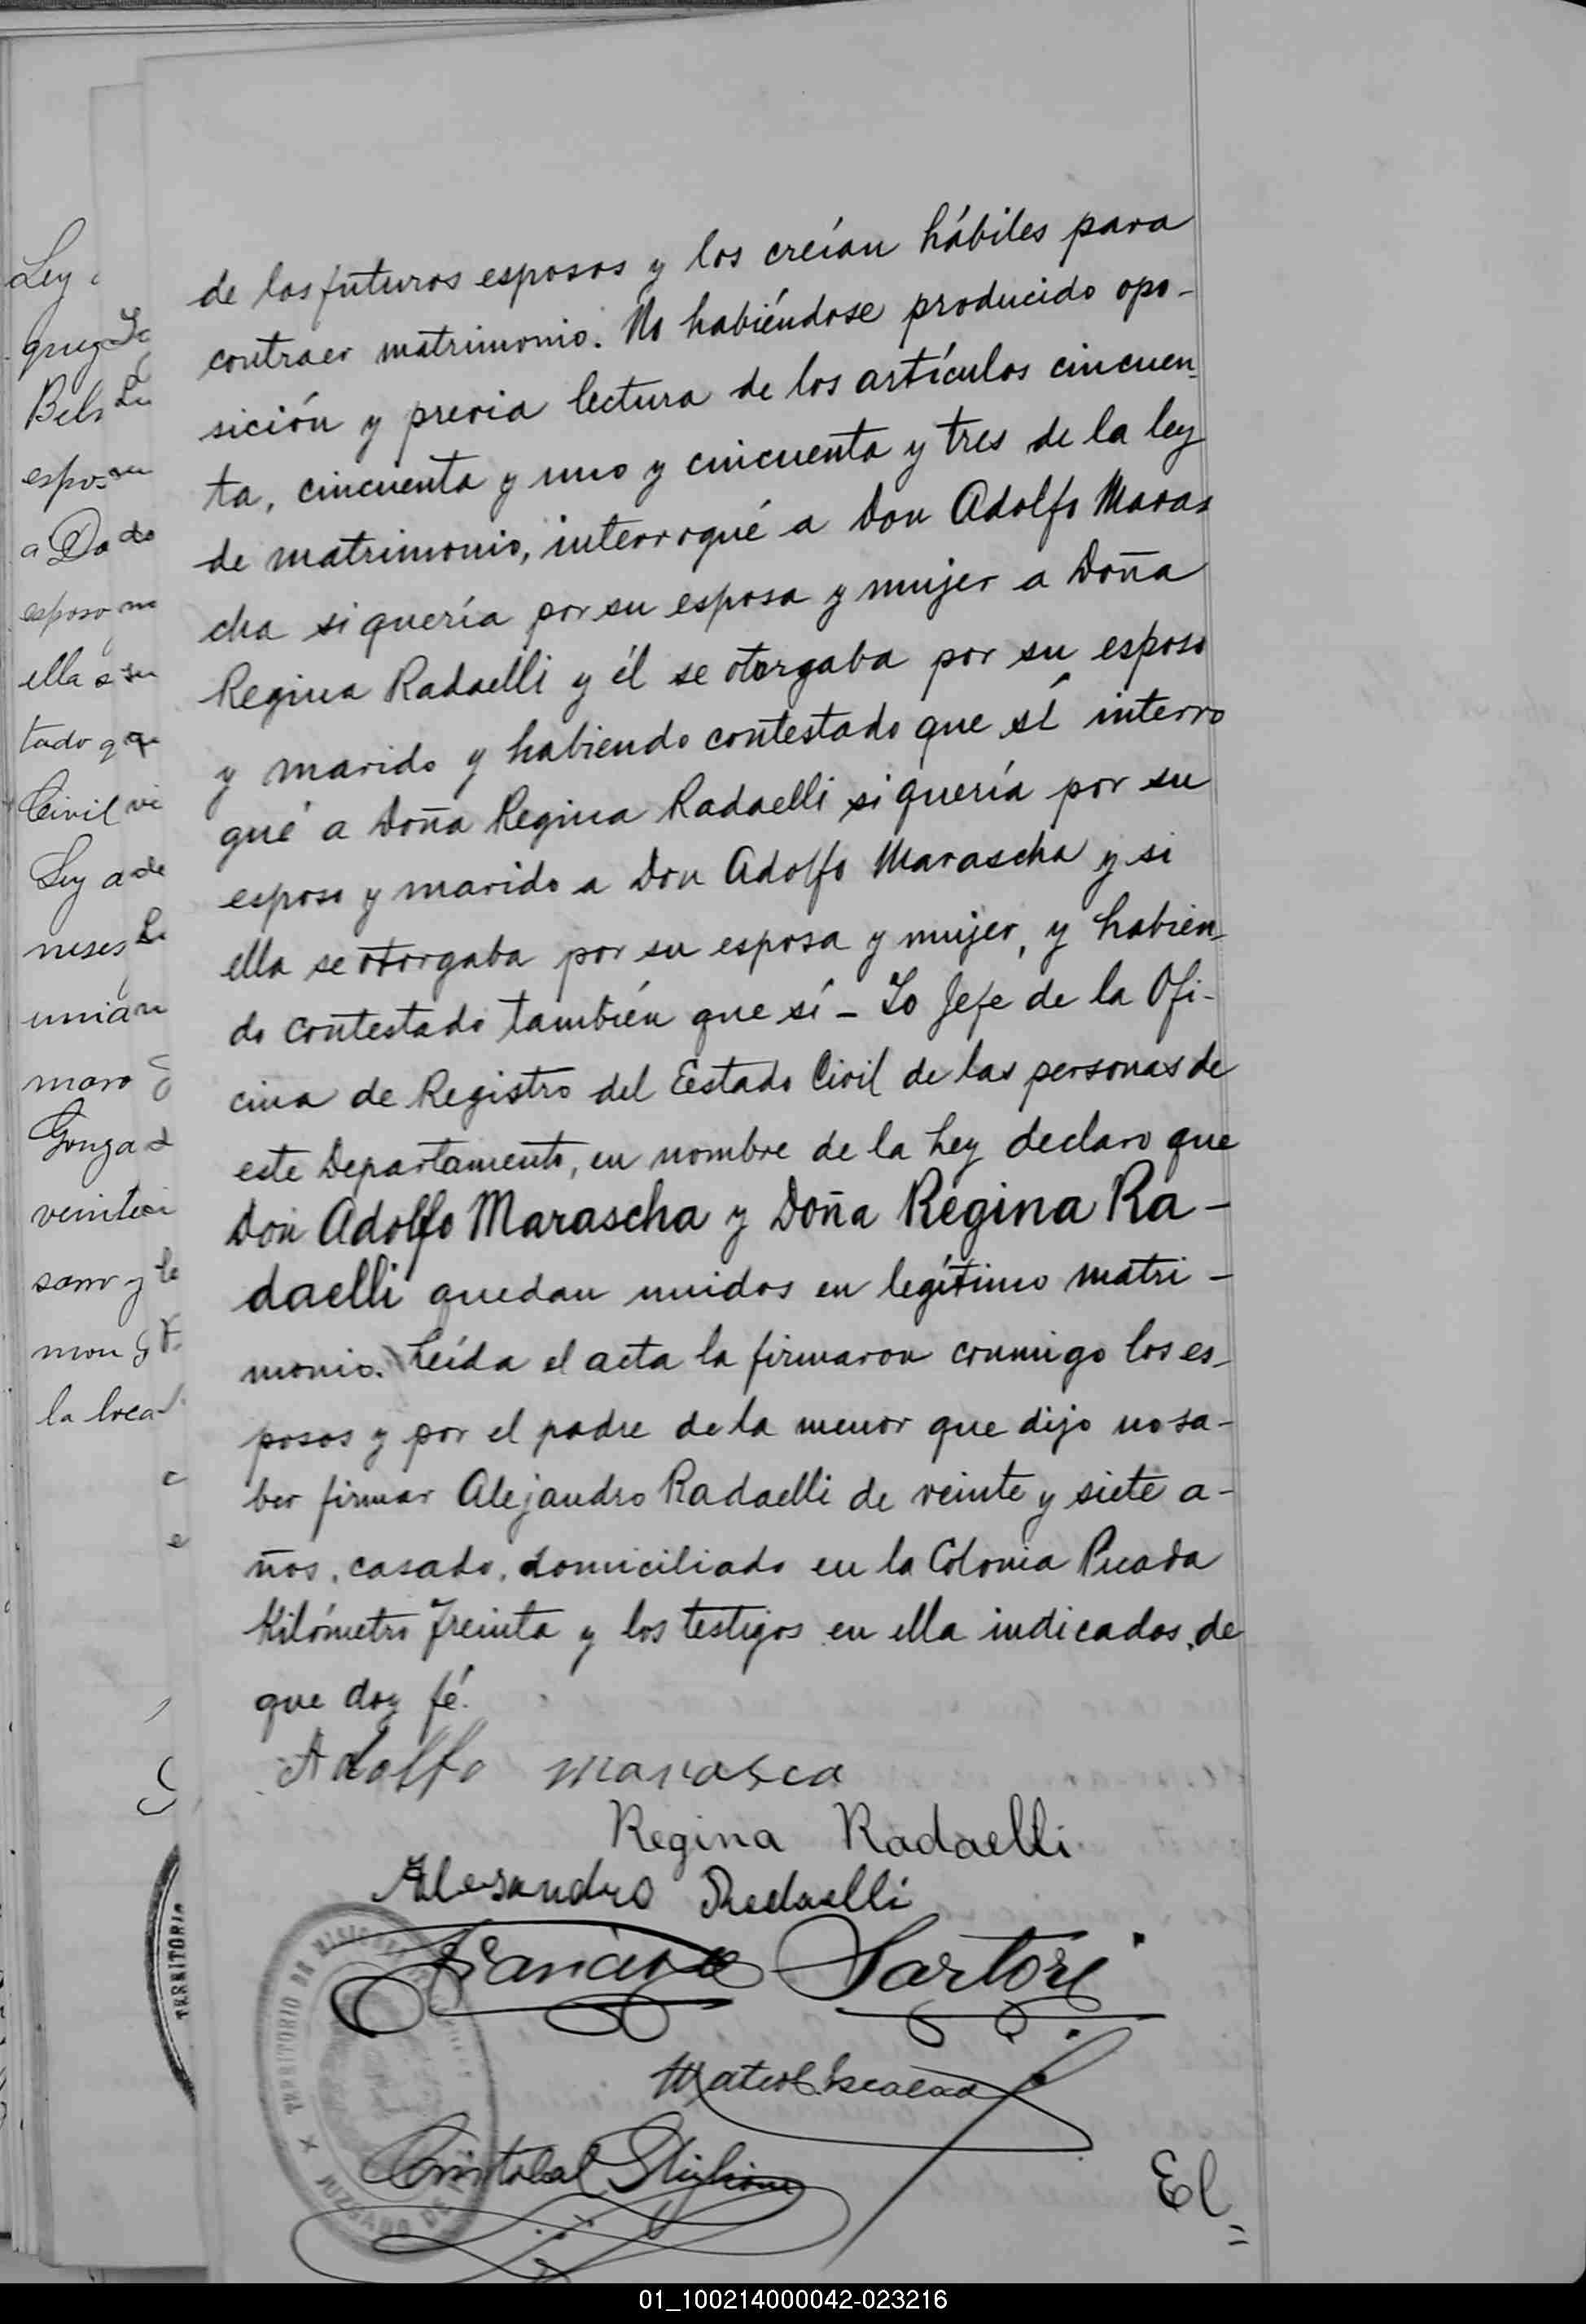 de los futuros esposos y los creían hábiles para
contraer matrimonio. No habiéndose producido opo-
sición y previa lectura de los artículos cincuen-
ta, cincuenta y uno y cincuenta y tres de la ley
de matrimonio, interrogué a Don Adolfo Maras
cha si quería por su esposa y mujer a Doña
Regina Radaelli y él se otorgaba por su esposo
y marido y habiendo contestado que sí interro
gué a Doña Regina Radaelli si quería por su
esposo y marido a Don Adolfo Marascha y si
ella se otorgaba por su esposa y mujer, y habien-
do contestado también que sí - Yo Jefe de la Ofi-
cina de Registro del Eestado Civil de las personas de
este Departamento, en nombre de la Ley declaro que
Don Adolfo Marascha y Doña Regina Ra-
daelli quedan unidos en legítimo matri-
monio. Leída el acta la firmaron conmigo los es-
posos y por el padre de la menor que dijo no sa-
ber firmar Alejandro Radaelli de veinte y siete a-
ños, casado, domiciliado en la Colonia Picada
Kilómetro Treinta y los testigos en ella indicados, de
que doy fé.
Adolfo Marasca
Regina Radaelli
Alesandro Redaelli
Francisco Sartori
Mateo
Cristobal
El
TERRITORIO DE MISIONES
JUZGADO DE PAZ
TERRITORIO
Ley
Bels
a Do do
ella a su
tado q
Civil vi
Ley a de
neses
unian
maro
Gonza
la loca
01_100214000042-023216